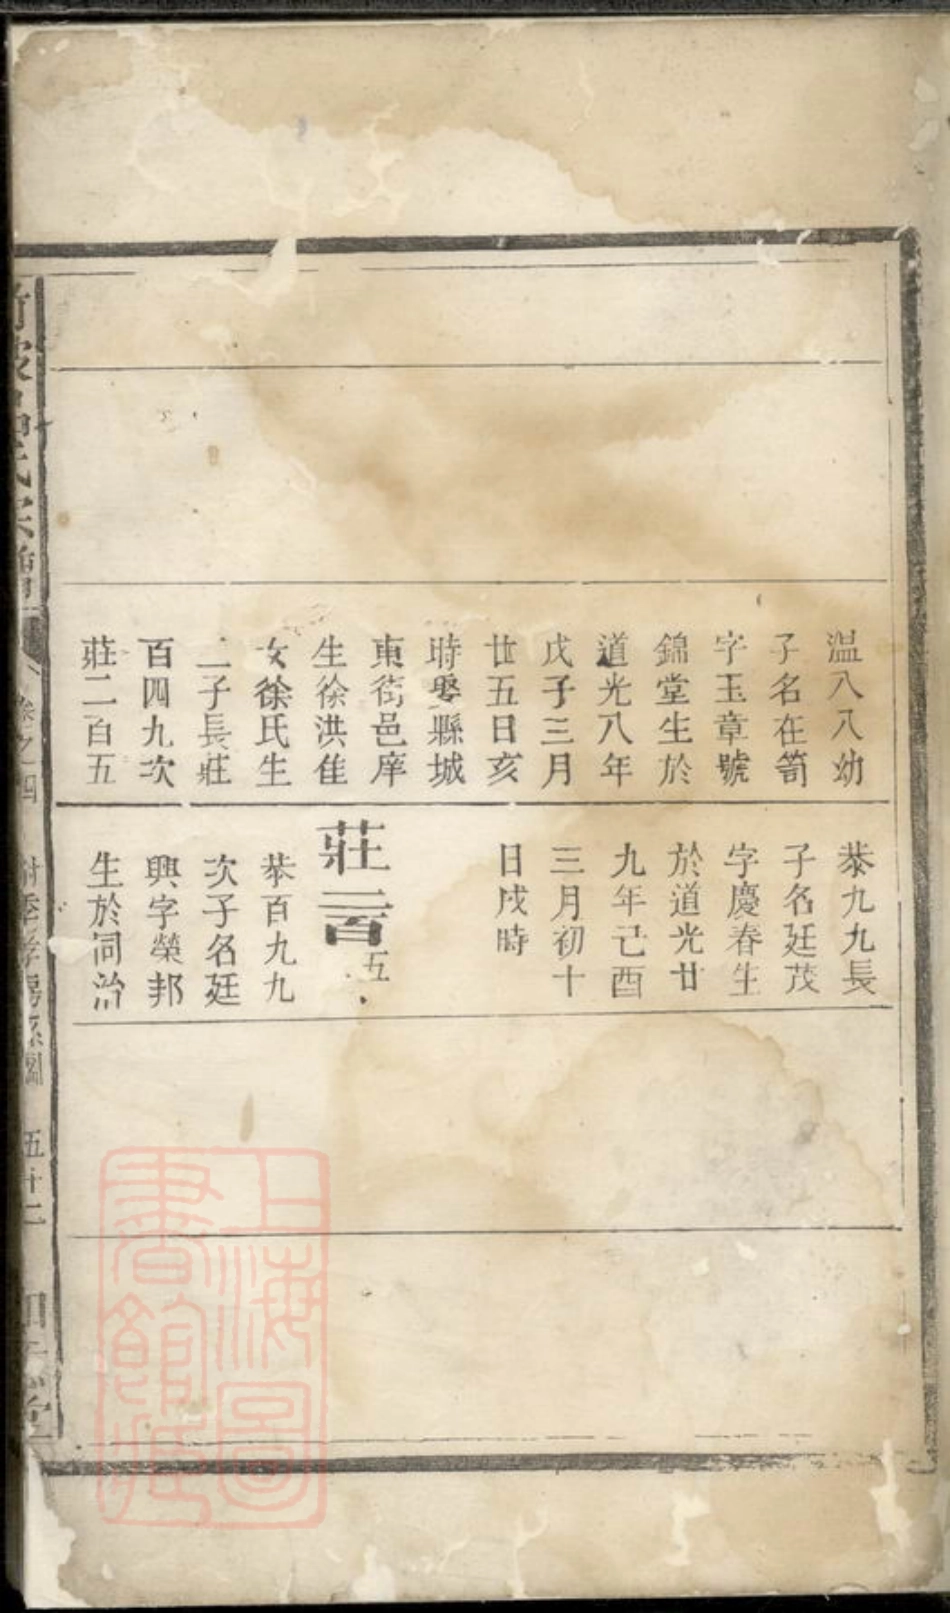 温八八幼
子名在笥
字玉章號
錦堂生於
道光八年
戊子三月
廿五日亥
時娶縣城
東街邑庠
生徐洪佳
女徐氏生
二子長莊
百四九次
莊二百五
恭九九長
子名廷茂
字慶春生
於道光廿
九年己酉
三月初十
日戌時
莊二百五
恭百九九
次子名廷
興字榮邦
生於同治
氏宗譜
卷之四
五十二
堂
上海圖
書館藏